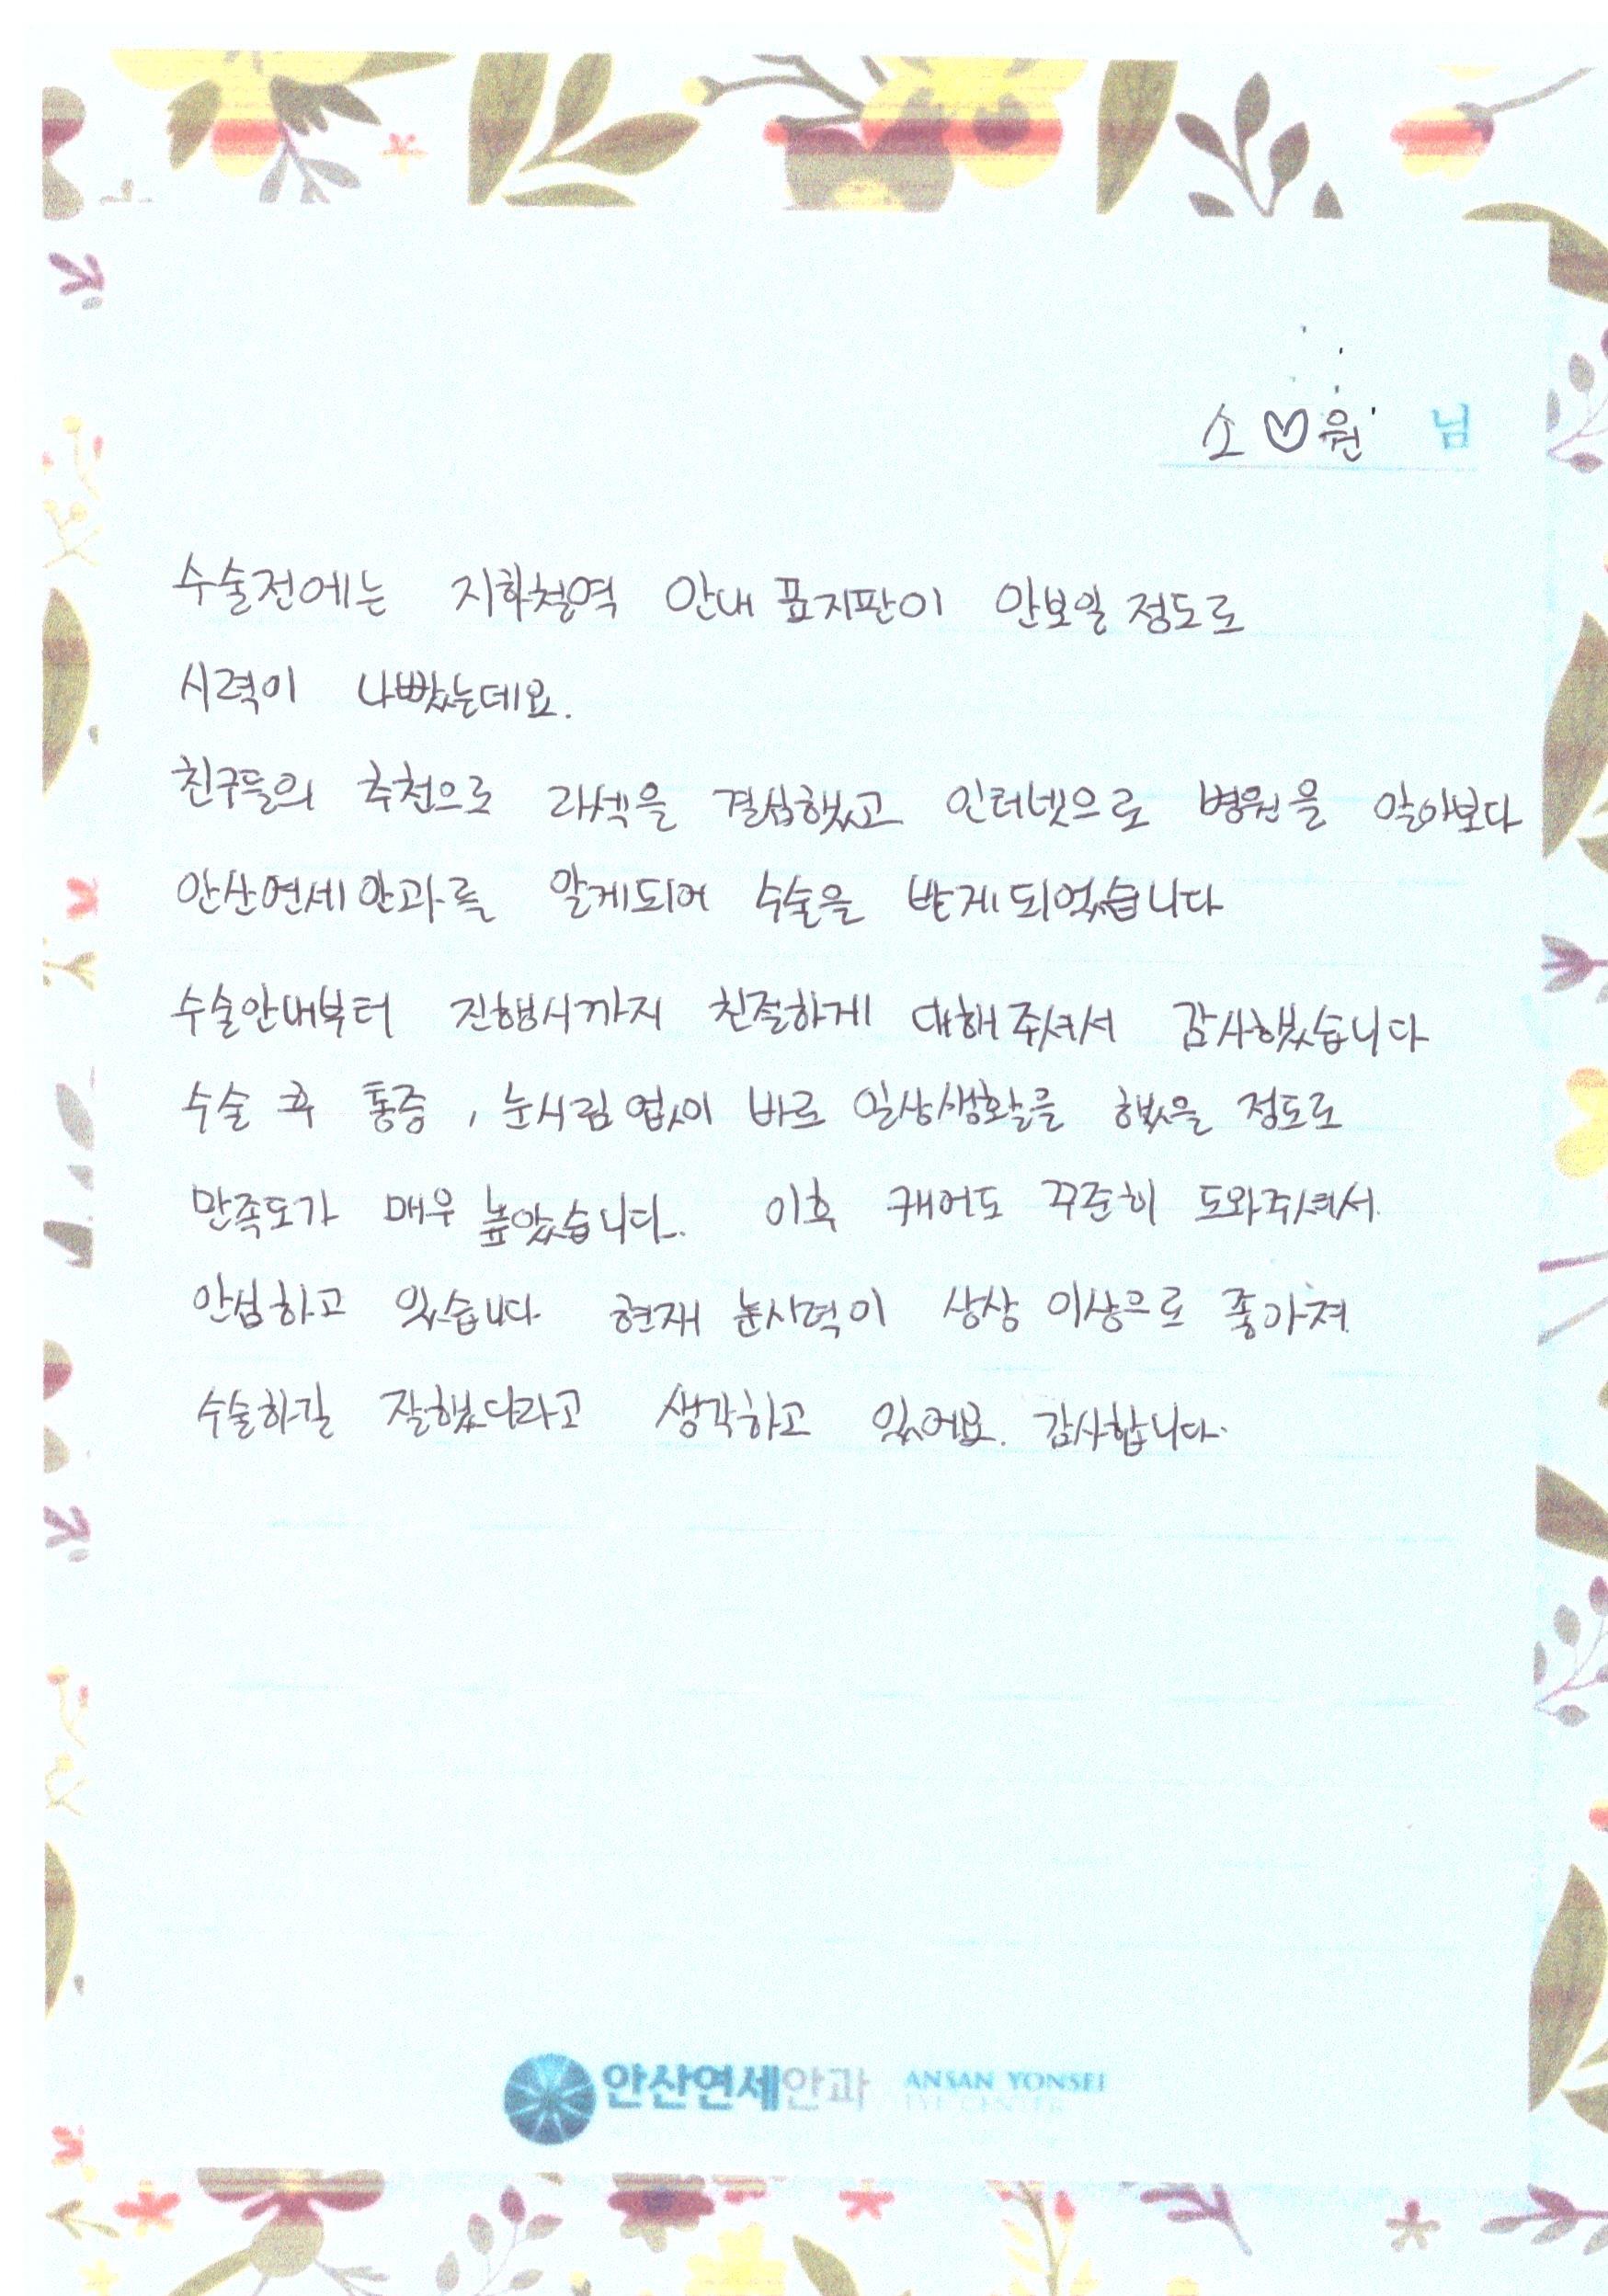 소♡원 님
수술전에는 지하철역 안내 표지판이 안보일 정도로
시력이 나빴는데요.
친구들의 추천으로 라섹을 결심했고 인터넷으로 병원을 알아보다
안산연세안과를 알게되어 수술을 받게되었습니다
수술안내부터 진행시까지 친절하게 대해주셔서 감사했습니다
수술 후 통증, 눈시림 없이 바로 일상생활을 했을 정도로
만족도가 매우 높았습니다. 이후 캐어도 꾸준히 도와주셔서
안심하고 있습니다 현재 눈시력이 상상 이상으로 좋아져
수술하길 잘했다라고 생각하고 있어요. 감사합니다.
안산연세안과 ANSAN YONSEI
EYE CENTER